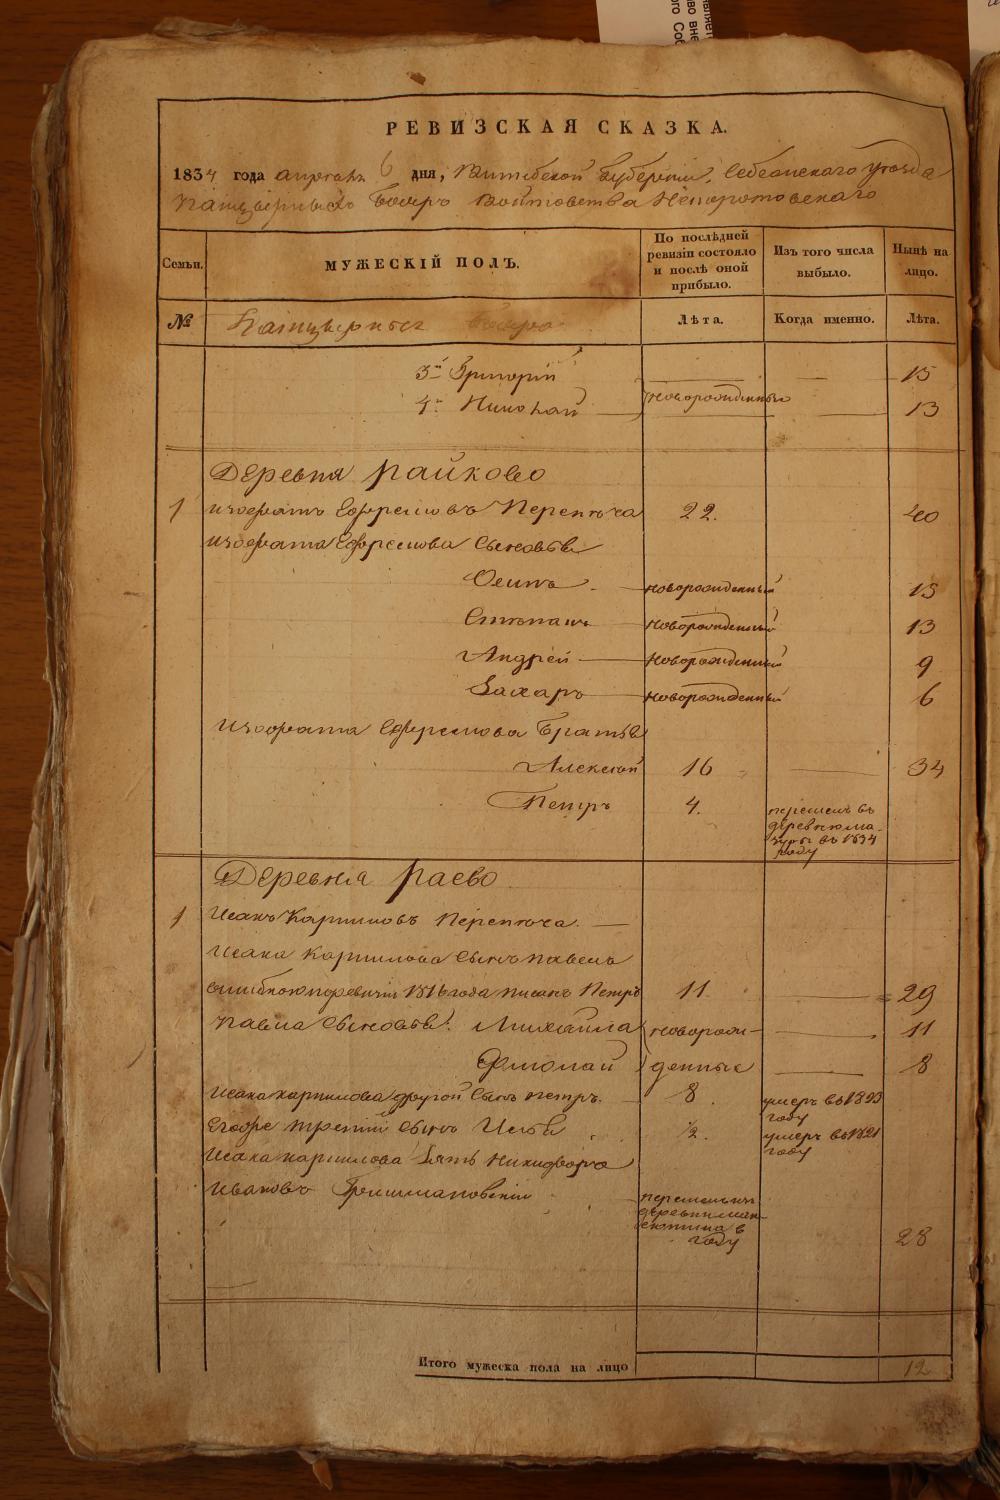 РЕВИЗСКАЯ СКАЗКА.
1834 года апреля 6 дня, Витебской Губернии, Себежского уезда
Панцырныхъ Бояръ Войтовства Непоротовскаго
Семьи.
МУЖЕСКІЙ ПОЛЪ.
По послѣдней ревизіи состояло и послѣ оной прибыло.
Изъ того числа выбыло.
Нынѣ на лицо.
№
Панцырные бояре
Лѣта.
Когда именно.
Лѣта.
3й Григорій 15
4й Николай новорожденные 13
Деревня Райково
1 Ефремовъ Перепеча 22. 40
Ефремова Сыновья
Осипъ новорожденный 15
Степанъ новорожденный 13
Андрей новорожденный 9
Захаръ новорожденный 6
Ефремова Братья
Алексей 16 34
Петръ 4. перешелъ въ
деревню
въ 1834
году
Деревня Раево
1 Исакъ Карпиловъ Перепеча.
Исака Карпилова Сынъ Павелъ
ошибкою по ревизіи 1816 года писанъ Петръ 11 29
Павла Сыновья: Михайла новорож- 11
денные 8
Исака карпилова другой Сынъ петръ. 8. умеръ въ 1823
году
Егоже третій Сынъ ½. умеръ въ 1821
году
Исака карпилова Зять
Ивановъ
деревни
в
году
28
Итого мужеска пола на лицо 12